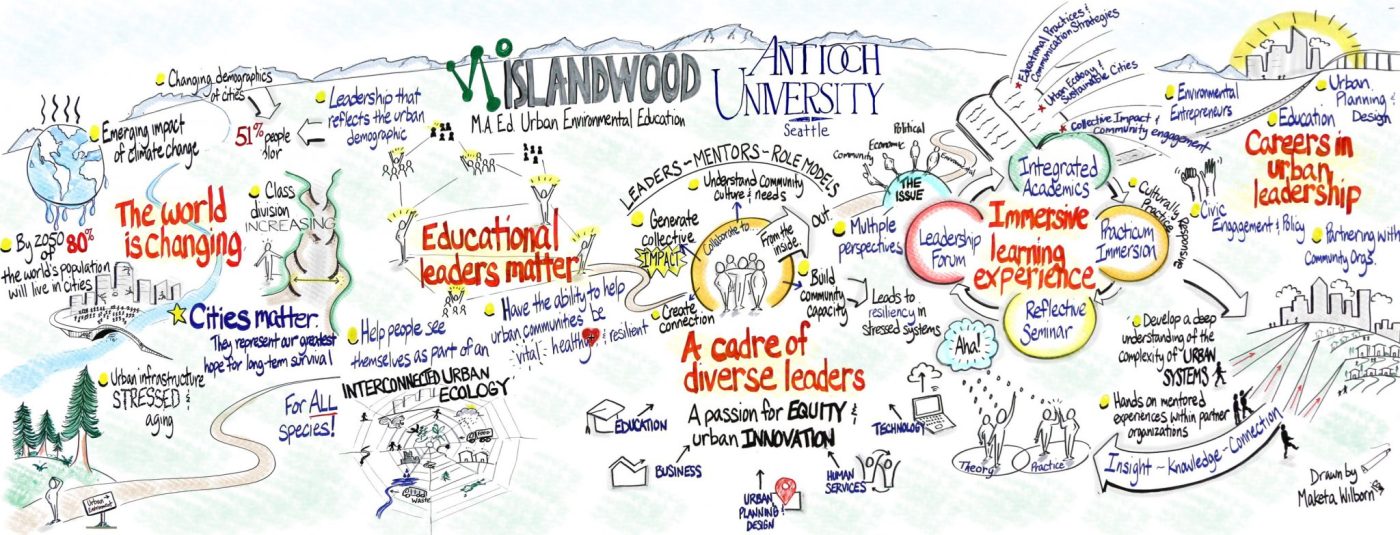 ISLANDWOOD
M.A.Ed. Urban Environmental Education
ANTIOCH
UNIVERSITY
Seattle
Changing demographics
of cities
51% people
olor
Leadership that
reflects the urban
demographic
Emerging impact
of climate change
The world
is changing
Class
division
INCREASING
By 2050 80%
of the world's population
will live in cities
Cities matter.
They represent our greatest
hope for long-term survival
Urban infrastructure
STRESSED &
aging
For ALL
species!
Urban
Educational
leaders matter
Help people see
themselves as part of an
INTERCONNECTED URBAN
ECOLOGY
FOOD
Waste
Have the ability to help
urban communities be
vital - healthy & resilient
LEADERS - MENTORS - ROLE MODELS
Understand community
culture & needs
Generate
Collective
IMPACT
Collaborate to...
From the
inside.
out.
Create
connection
Build
community
capacity
Leads to
resiliency in
stressed systems
A cadre of
diverse leaders
A passion for EQUITY &
urban INNOVATION
EDUCATION
BUSINESS
URBAN
PLANNING &
DESIGN
HUMAN
SERVICES
TECHNOLOGY
Political
Economic
Community
Environmental
THE
ISSUE
Multiple
perspectives
Educational Practices &
Communication Strategies
Urban Ecology &
Sustainable Cities
Collective Impact &
Community engagement
Integrated
Academics
Leadership
Forum
Immersive
learning
experience
Practicum
Immersion
Reflective
Seminar
Culturally
Responsive
Practice
Aha!
Theory
Practice
Develop a deep
understanding of the
complexity of URBAN
SYSTEMS
Hands on mentored
experiences within partner
organizations
Insight - Knowledge - Connection
Environmental
Entrepreneurs
Education
Urban
Planning &
Design
Careers in
urban
leadership
Civic
Engagement & Policy
Partnering with
Community Orgs.
Drawn by
Maketa Wilborn